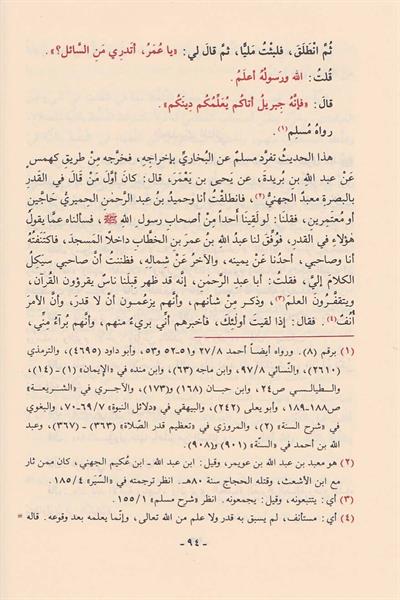 ثُمَّ انْطَلَقَ، فلَبِثْتُ مَلِيًّا، ثمَّ قالَ لي: «يا عُمَرُ، أتَدرِي مَنِ السَّائل؟».
قُلتُ: الله ورَسولُهُ أعلَمُ.
قالَ: «فإنَّهُ جِبريلُ أتاكُم يُعَلِّمُكُم دِينَكُم».
رواهُ مُسلِم(١).
هذا الحديثُ تفرَّد مسلم عن البُخاريِّ بإخراجِه، فخرَّجه مِنْ طريقِ كهمسٍ
عَنْ عبدِ الله بنِ بُريدةَ، عن يحيى بن يَعْمَرَ، قال: كان أوَّلَ مَنْ قالَ في القَدَرِ
بالبصرةِ معبدٌ الجهنيُّ(٢)، فانطلقتُ أنا وحميدُ بنُ عبد الرَّحمٰنِ الحِميريُّ حَاجَّينِ
أو مُعتَمِرينِ، فقلنا: لو لَقِينَا أحداً مِنْ أصحابِ رسولِ الله ﷺ، فسألناه عمَّا يقولُ
هؤلاءِ في القدرِ، فوُفِّقَ لنا عبدُ الله بنُ عمرَ بنِ الخطَّابِ داخلاً المسجدَ، فاكتَنَفْتُهُ
أنا وصاحبي، أحدُنا عن يمينه، والآخرُ عَنْ شِمالِه، فظننتُ أنَّ صاحبي سيَكِلُ
الكلامَ إليَّ، فقلتُ: أبا عبدِ الرَّحمٰن، إنَّه قد ظهر قِبلَنا ناسٌ يقرؤون القُرآن،
ويتقفَّرُون العلمَ(٣)، وذكر مِنْ شأنهم، وأنَّهم يزعُمونَ أنْ لا قدرَ، وأنَّ الأمرَ
أُنُفٌ(٤). فقال: إذا لقيتَ أولئكَ، فأخبرهم أنِّي بريءٌ منهم، وأنَّهم بُرآءُ مِنِّي،
(١) برقم (٨). ورواه أيضاً أحمد ٢٧/١ و٥١-٥٢ و٥٣، وأبو داود (٤٦٩٥)، والترمذي
(٢٦١٠)، والنَّسائي ٩٧/٨، وابن ماجه (٦٣)، وابن منده في «الإيمان» (١)-(١٤)،
والطيالسي ص٢٤، وابن حبان (١٦٨) و(١٧٣)، والآجري في «الشريعة»
ص١٨٨-١٨٩، وأبو يعلى (٢٤٢)، والبيهقي في «دلائل النبوة» ٦٩/٧-٧٠، والبغوي
في «شرح السنة» (٢)، والمروزي في «تعظيم قدر الصَّلاة» (٣٦٣) - (٣٦٧)، وعبد
الله بن أحمد في «السنَّة» (٩٠١) و(٩٠٨).
(٢) هو معبد بن عبد الله بن عويمر، وقيل: ابن عبد الله - ابن عُكيم الجهني، كان ممن ثار
مع ابن الأشعث، وقتله الحجاج سنة ٨٠هـ. انظر ترجمته في «السِّيَر» ١٨٥/٤.
(٣) أي: يتتبعونه، وقيل: يجمعونه. انظر «شرح مسلم» ١٥٥/١.
(٤) أي: مستأنف، لم يسبق به قدر ولا علم من الله تعالى، وإنَّما يعلمه بعد وقوعه. قاله =
- ٩٤ -